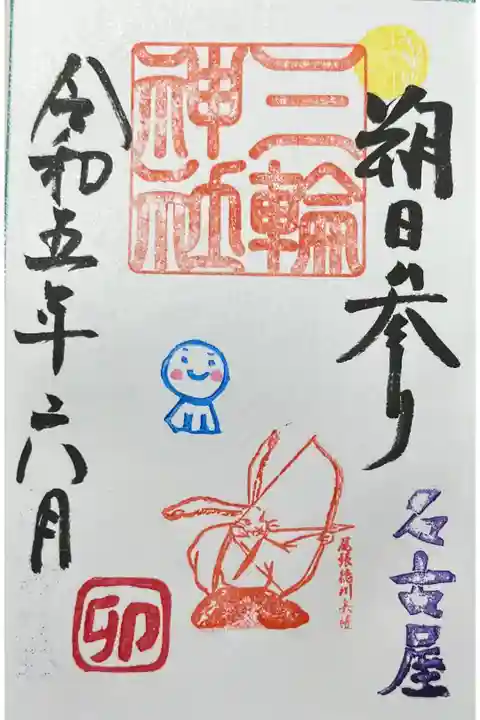 朔日参り
名古屋
三輪
神社
尾張徳川
令和五年六月
卯